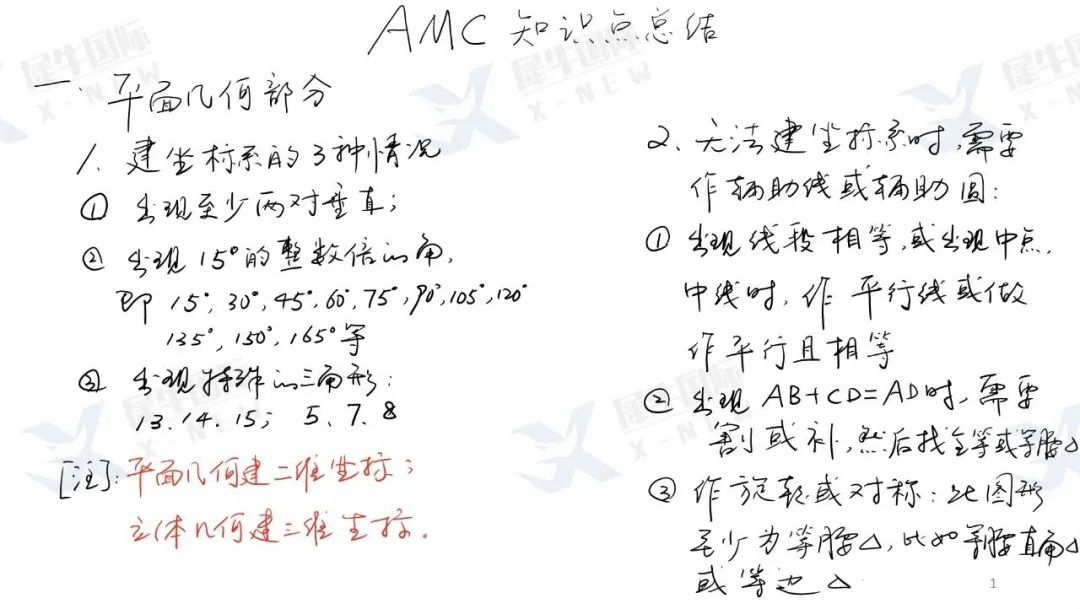 AMC 知识点总结
一、平面几何部分
1、建坐标系的3种情况
① 出现至少两对垂直;
② 出现15°的整数倍的角,
即 15°, 30°, 45°, 60°, 75°, 90°, 105°, 120°
135°, 150°, 165°等
③ 出现特殊的三角形:
13.14.15; 5、7、8
[注]:平面几何建二维坐标;
立体几何建三维坐标.
2、无法建坐标系时,需要
作辅助线或辅助圆:
① 出现线段相等,或出现中点.
中线时,作平行线或做
作平行且相等
② 出现 AB+CD=AD时,需要
割或补,然后找全等或等腰△
③ 作旋转或对称:此图形
至少为等腰△,比如等腰直角△
或等边△
1
犀牛国际
X-NEW
犀牛国际
X-NEW
犀牛国际
X-NEW
犀牛国际
X-NEW